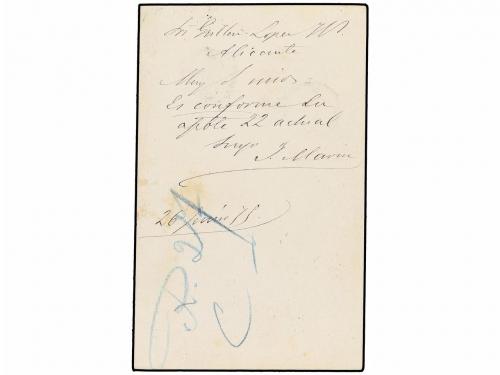 Sr Guillen Lopez
Alicante
Muy S mios =
Es conforme su
apble 22 actual
Suyo
J. Marin
26 Junio 75.
R. 27
C